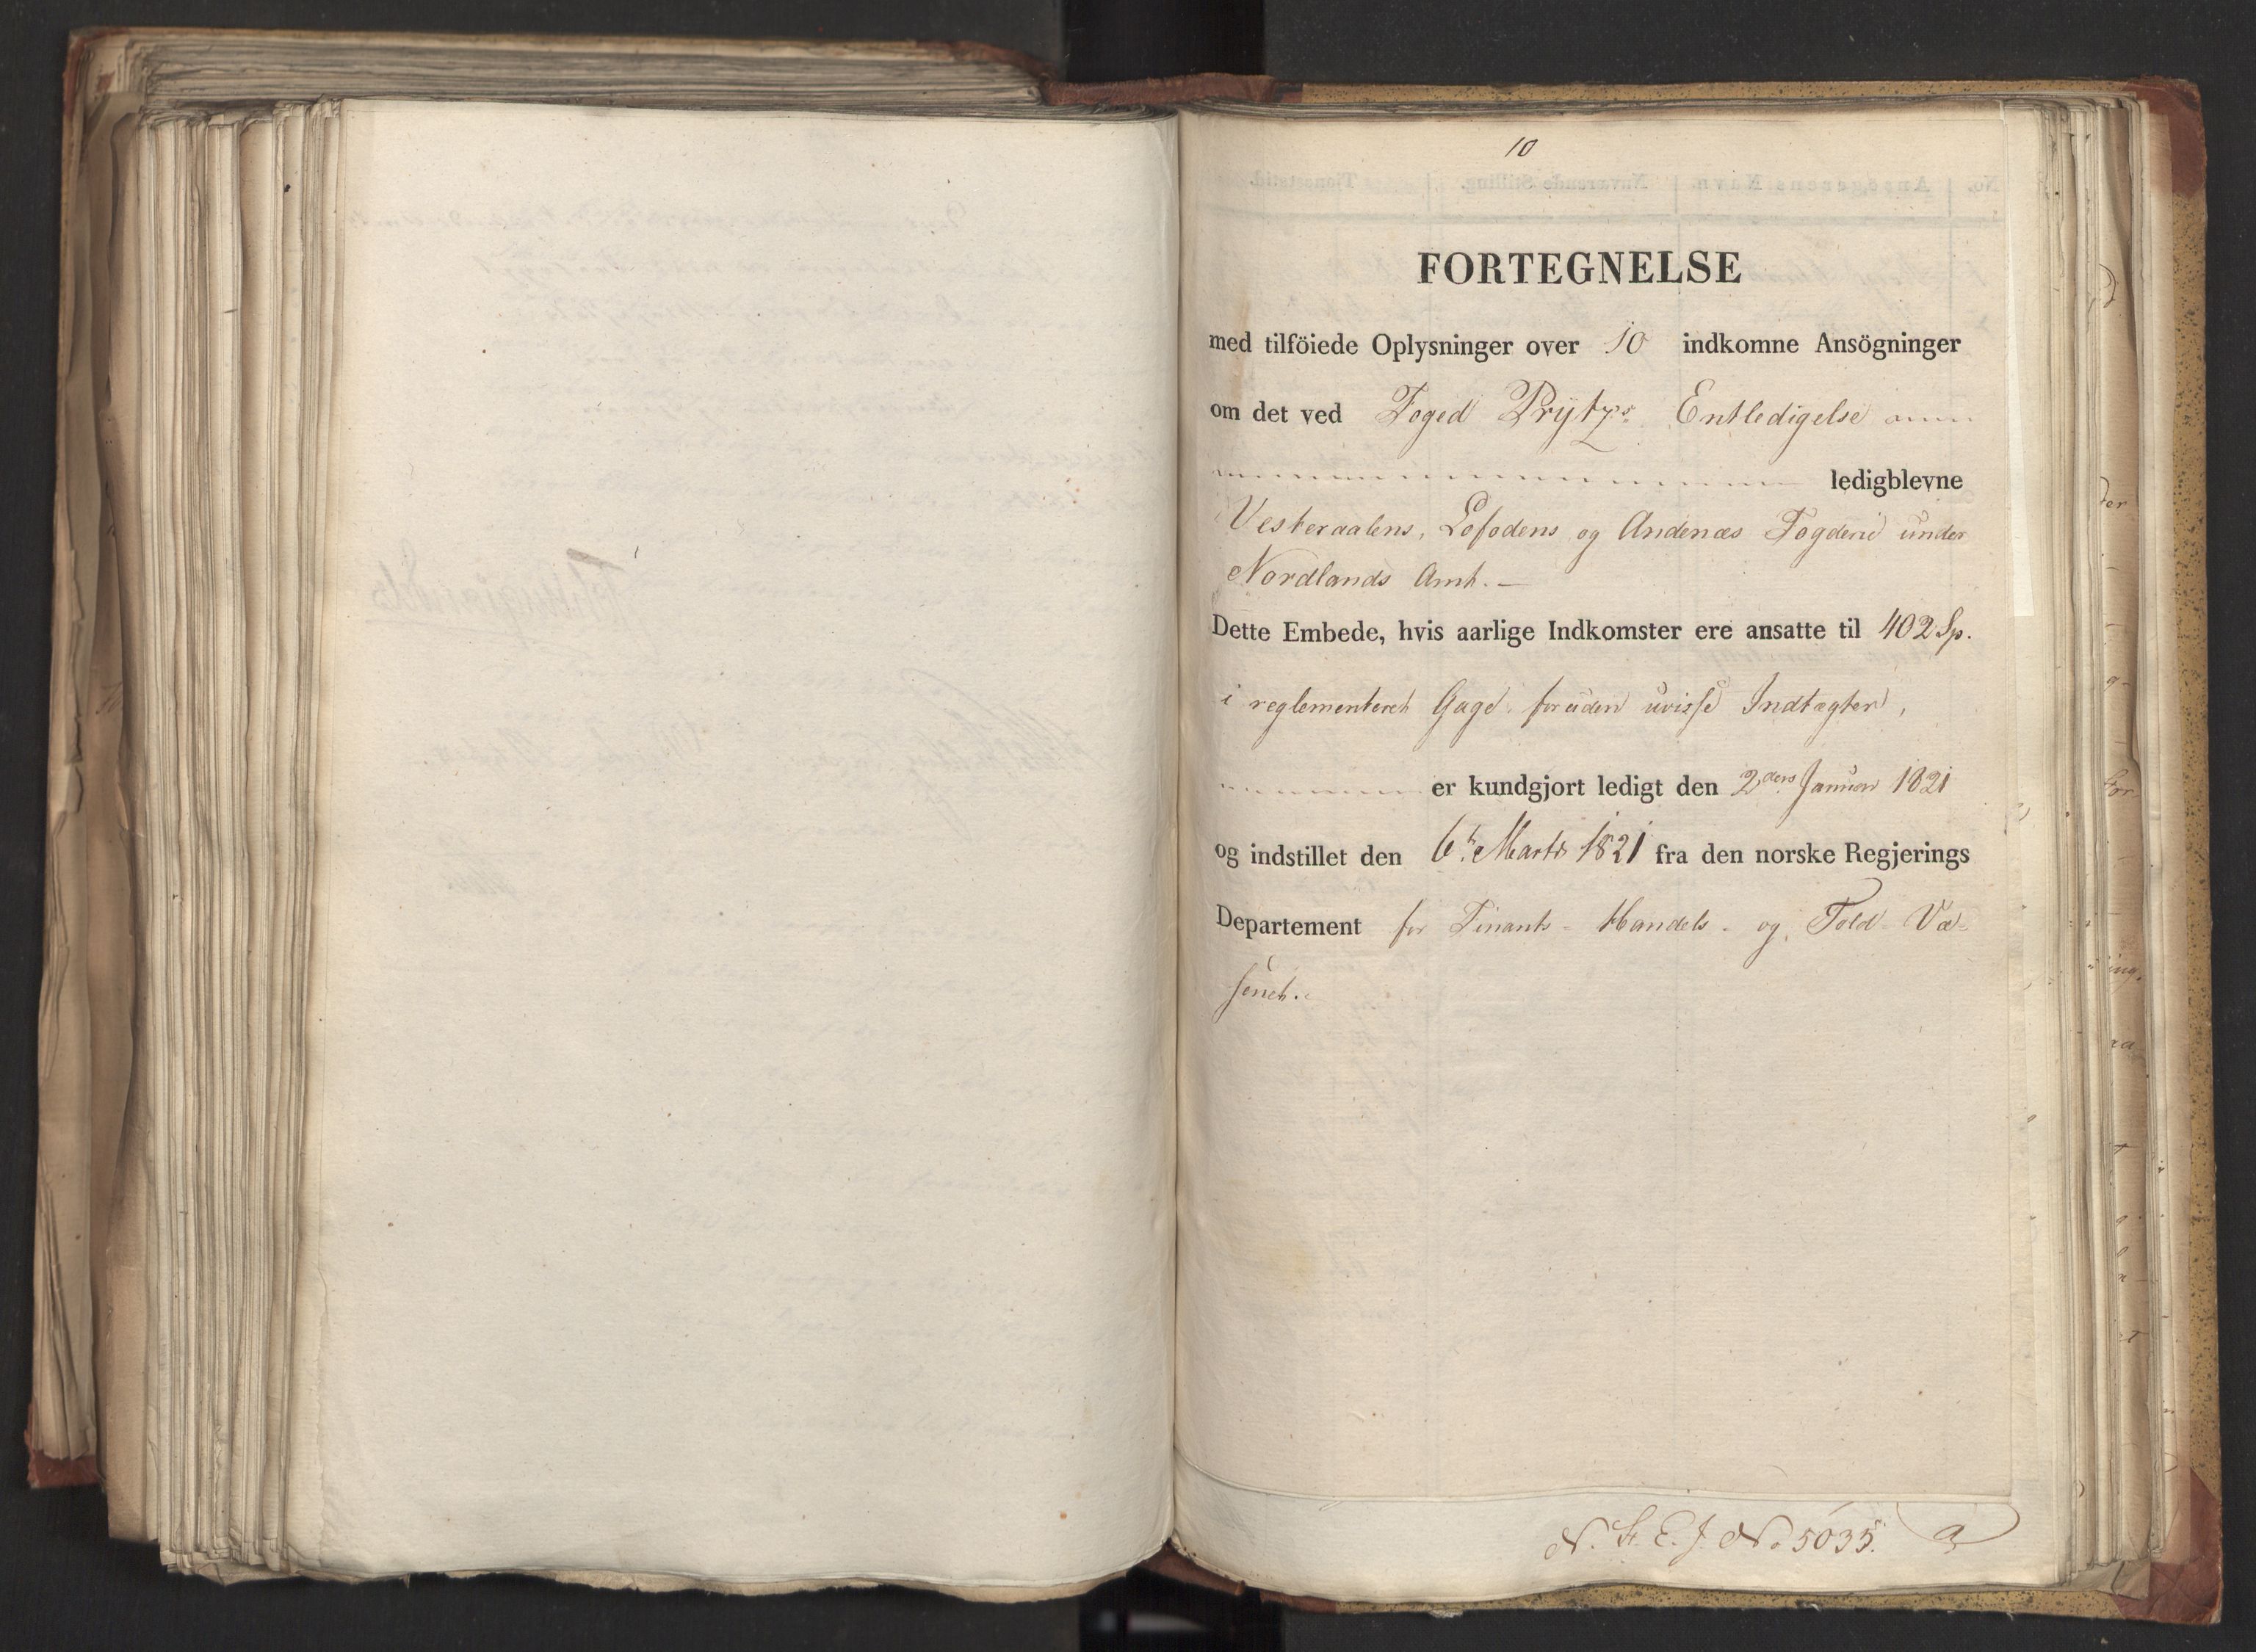 10
FORTEGNELSE
med tilföiede Oplysninger over 10 indkomne Ansögninger
om det ved Foged Prÿtz's Entledigelse
ledigblevne
Vesteraalens, Lofodens og Andenæs Fogderie under
Nordlands Amt. —
Dette Embede, hvis aarlige Indkomster ere ansatte til 402 Sp.
i reglementeret Gage foruden uvisse Indtægter,
er kundgjort ledigt den 2den Januar 1821
og indstillet den 6te Marts 1821 fra den norske Regjerings
Departement for Finants- Handels- og Told-Væ-
senet.
N. St. E. J. No 5035. a